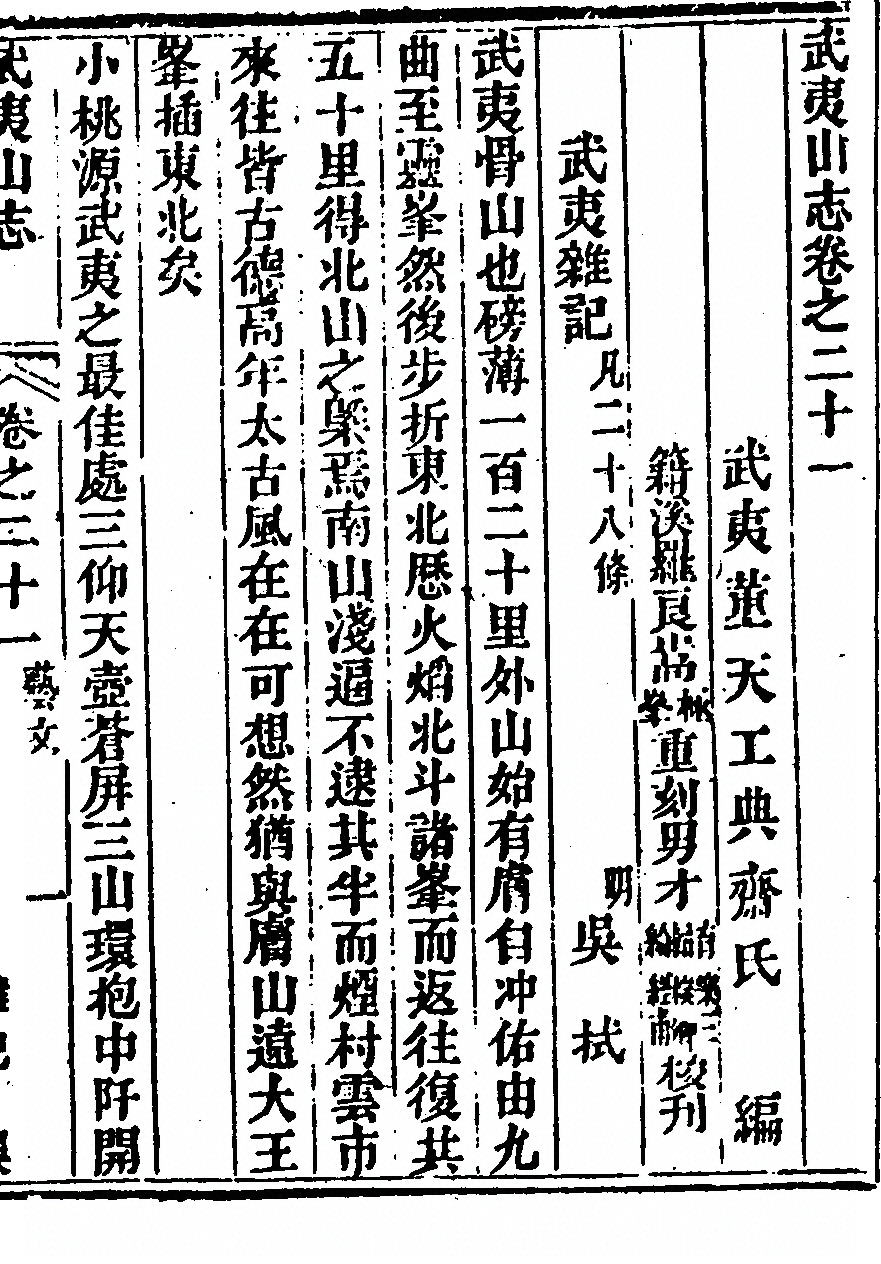 武夷山志卷之二十一
武夷董天工典齋氏 編
籍溪羅良嵩重刻男才 校刊
武夷雜記凡二十八條 明吳拭
武夷骨山也磅薄一百二十里外山始有膚自冲佑由九
曲至靈峯然後步折東北歷火焰北斗諸峯而返往復共
五十里得北山之槩焉南山淺逼不逮其半而煙村雲市
來往皆古德高年太古風在在可想然猶與膚山遠大王
峯插東北矣
小桃源武夷之最佳處三仰天壺蒼屏三山環抱中阡開
武夷山志 卷之二十一 藝文 一